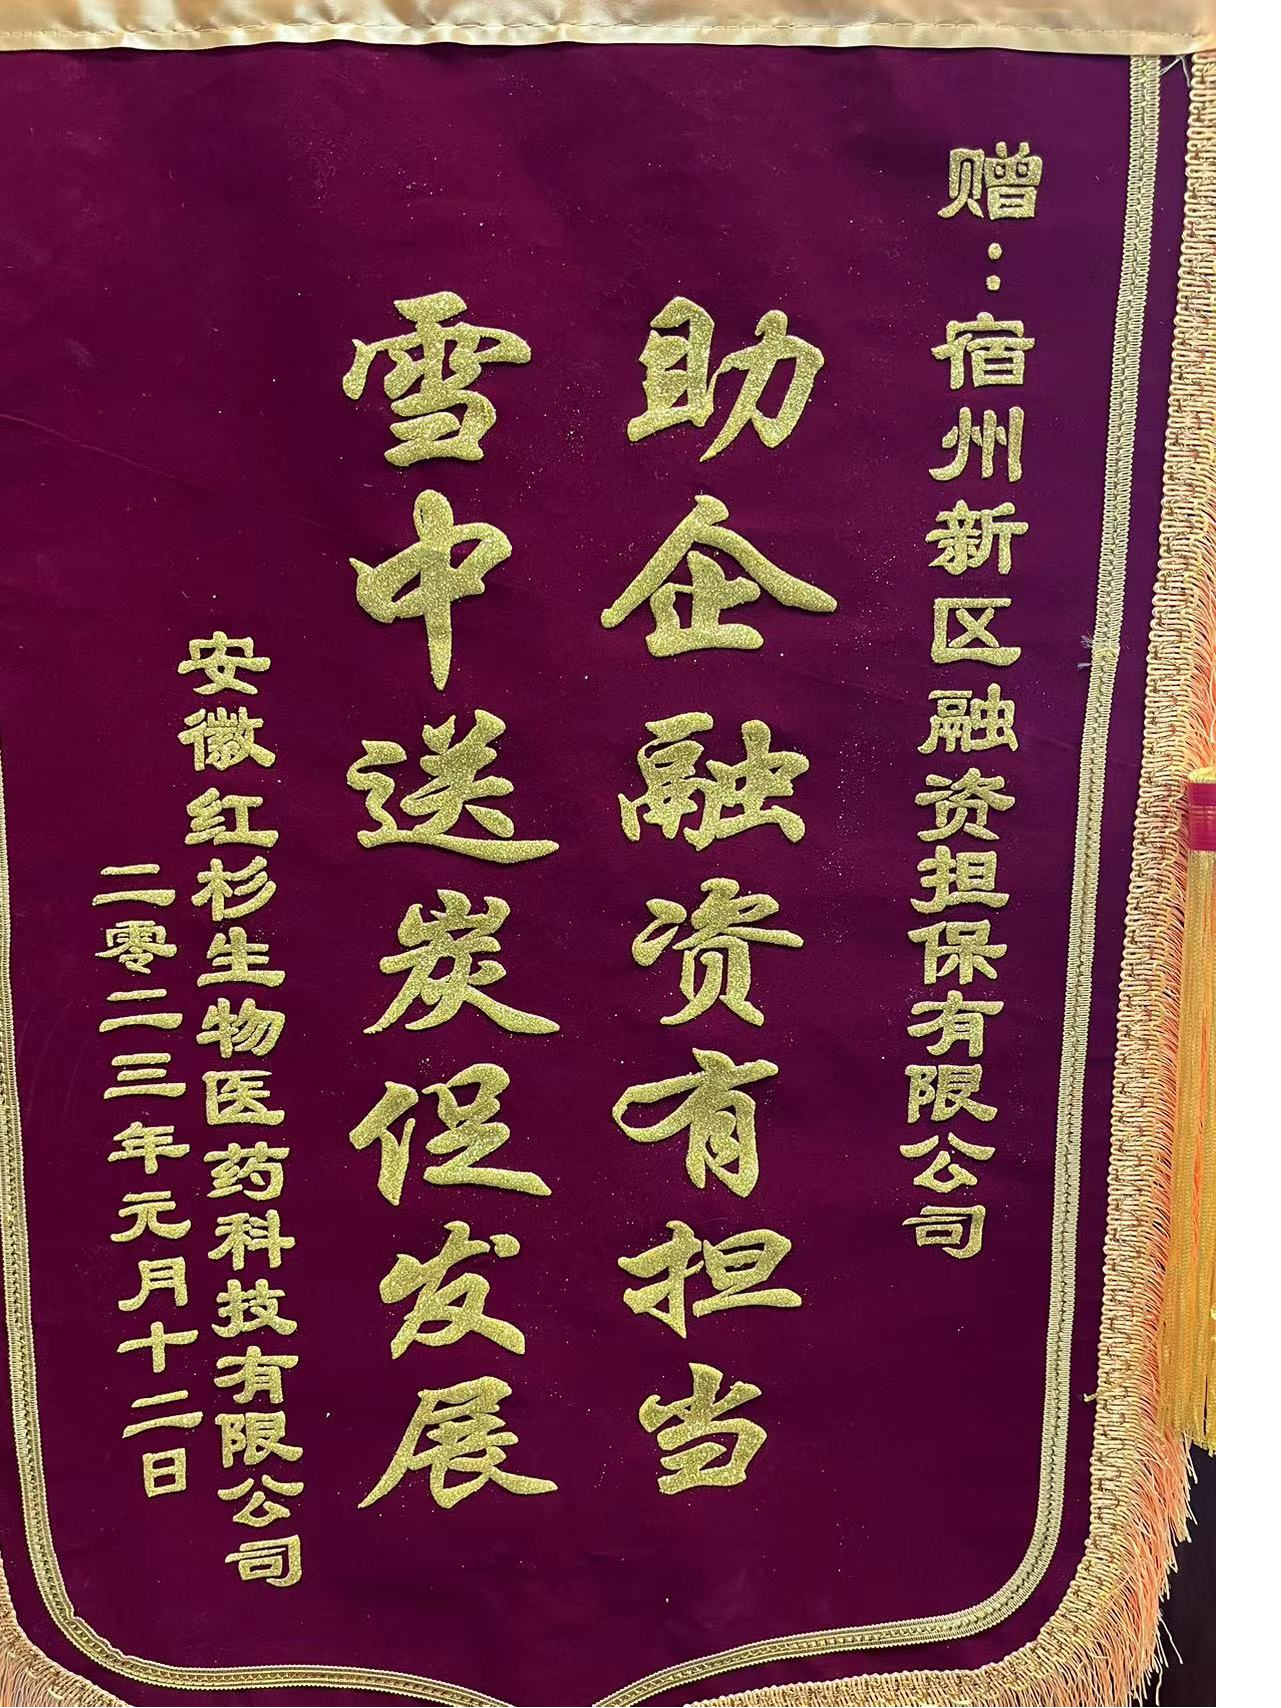 赠：宿州新区融资担保有限公司
助企融资有担当
雪中送炭促发展
安徽红杉生物医药科技有限公司
二零二三年元月十二日